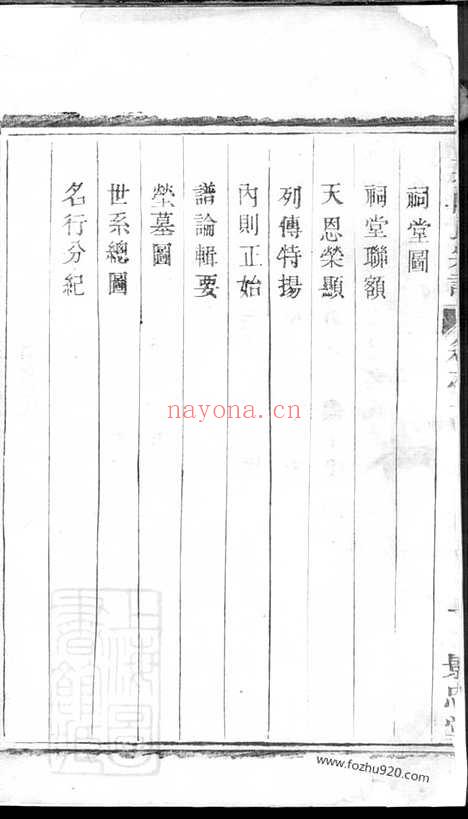 祠堂圖
祠堂聯額
天恩榮顯
列傳特揚
內則正始
譜論輯要
塋墓圖
世系總圖
名行分紀
nayona.cn
上海圖書館藏
www.fozhu920.com